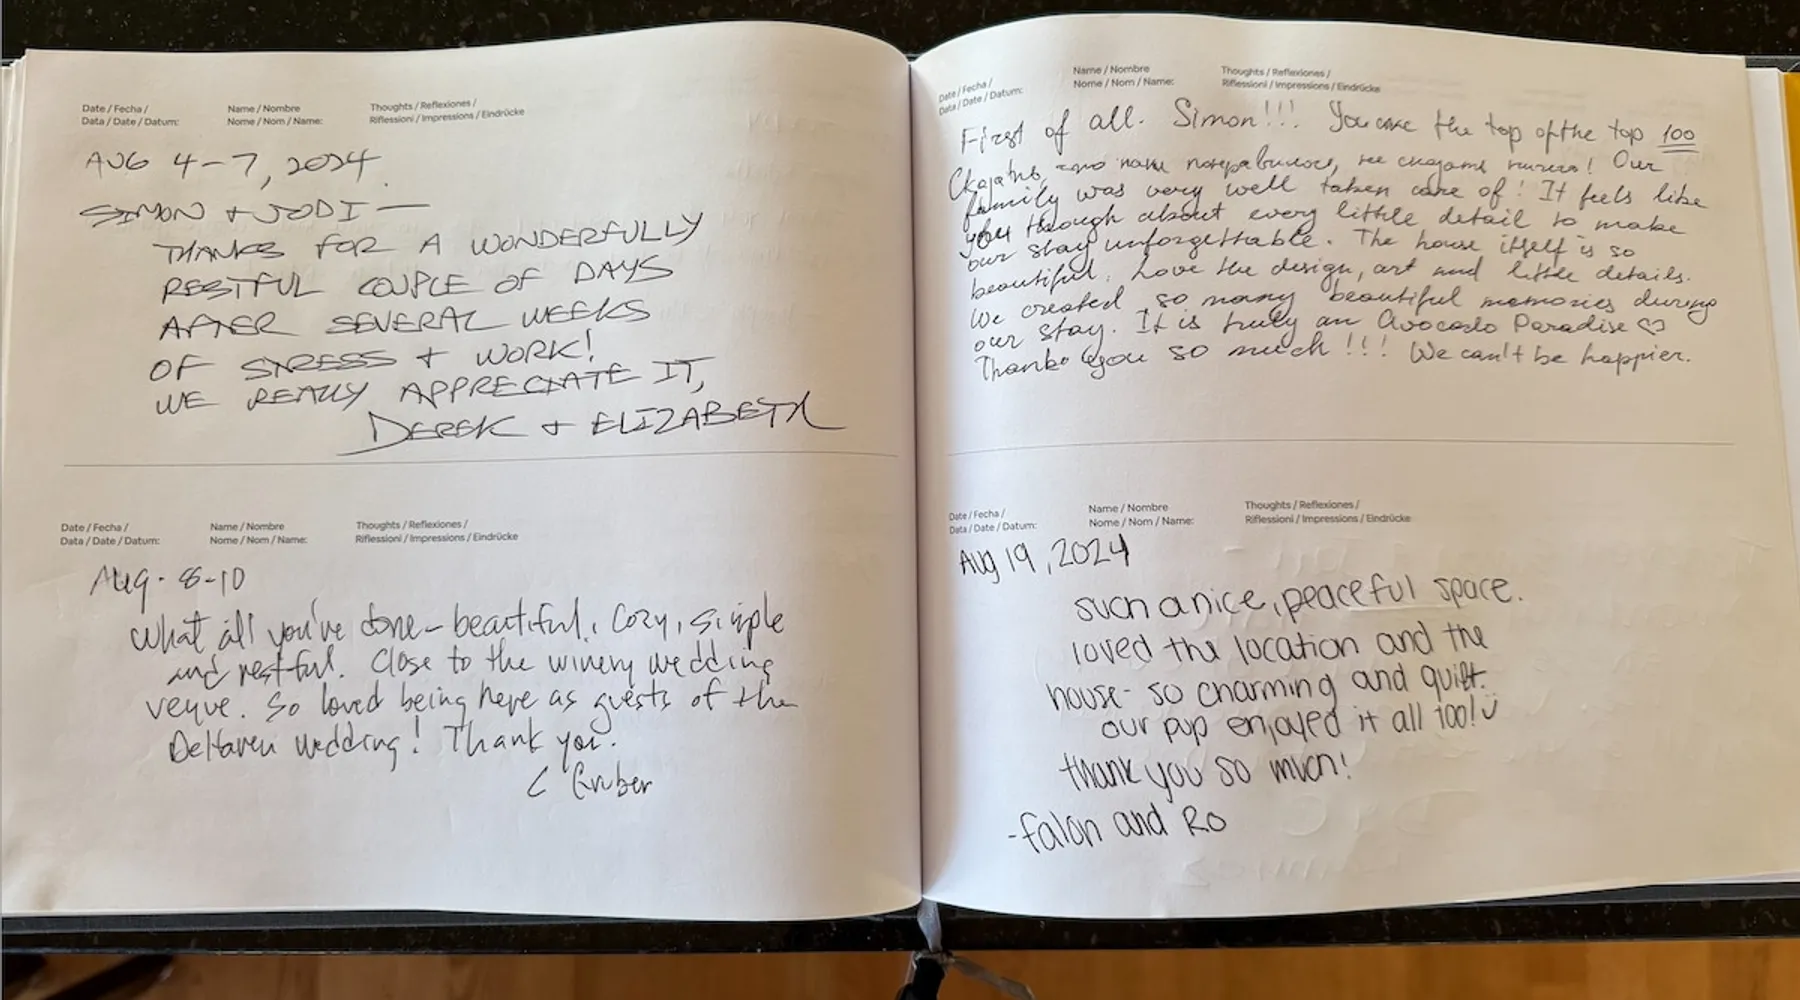 Date / Fecha /
Data / Date / Datum:
Name / Nombre
Nome / Nom / Name:
Thoughts / Reflexiones /
Riflessioni / Impressions / Eindrücke
AUG 4-7, 2024.
SIMON + JODI —
THANKS FOR A WONDERFULLY
RESTFUL COUPLE OF DAYS
AFTER SEVERAL WEEKS
OF STRESS + WORK!
WE REALLY APPRECIATE IT,
DEREK + ELIZABETH
Date / Fecha /
Data / Date / Datum:
Name / Nombre
Nome / Nom / Name:
Thoughts / Reflexiones /
Riflessioni / Impressions / Eindrücke
Aug. 8-10
What all you've done - beautiful, Cozy, simple
and restful. Close to the winery wedding
venue. So loved being here as guests of the
DeHaven wedding! Thank you.
C Gruber
Date / Fecha /
Data / Date / Datum:
Name / Nombre
Nome / Nom / Name:
Thoughts / Reflexiones /
Riflessioni / Impressions / Eindrücke
First of all. Simon!!! You are the top of the top 100
Сказать, что нам понравилось, не сказать ничего! Our
family was very well taken care of! It feels like
you though about every little detail to make
our stay unforgettable. The house itself is so
beautiful. Love the design, art and little details.
We created so many beautiful memories during
our stay. It is truly an Avocado Paradise ♡
Thank you so much!!! We can't be happier.
Date / Fecha /
Data / Date / Datum:
Name / Nombre
Nome / Nom / Name:
Thoughts / Reflexiones /
Riflessioni / Impressions / Eindrücke
Aug 19, 2024
such a nice, peaceful space.
loved the location and the
house- so charming and quiet.
our pup enjoyed it all too!
thank you so much!
-falon and Ro